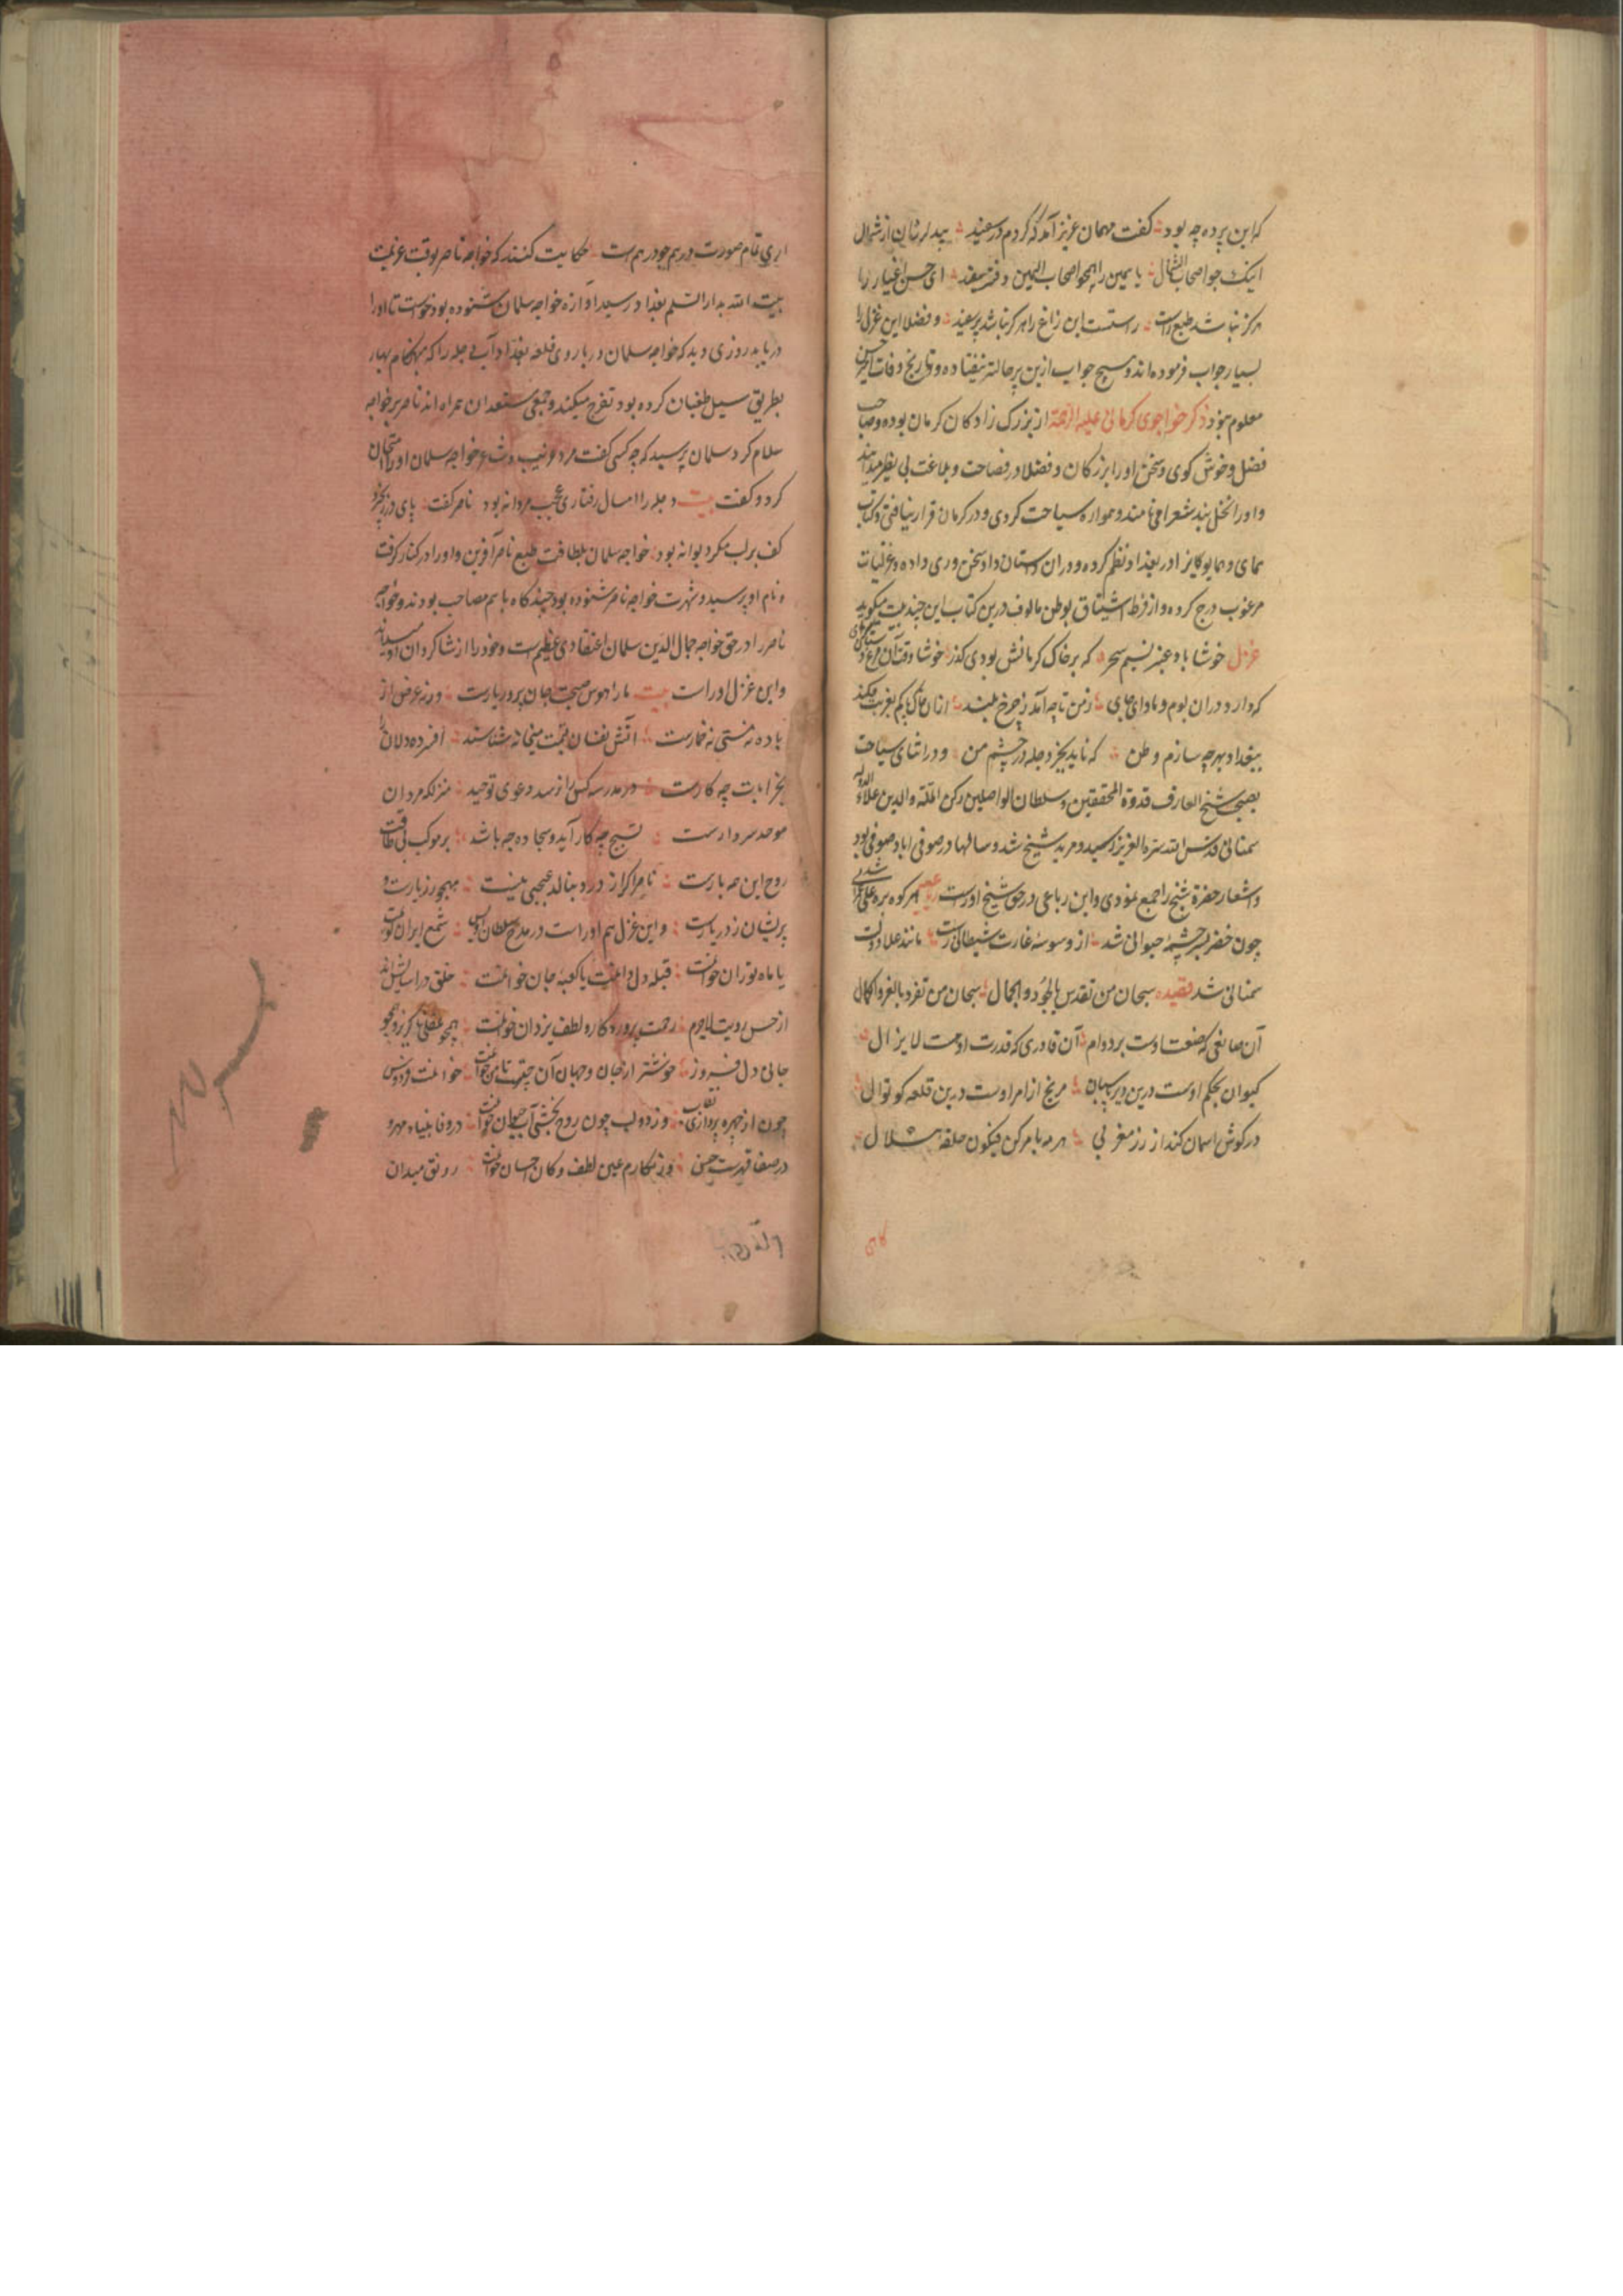 که این پرده چه بود گفت مهمان عزیز آمد که کردم در سفید بید لرزان از شمال
اینک چو اصحاب الشمال یا یمین را همچو اصحاب الیمین دفتر سفید ای حسن اغیار را
هرگز نباشد طبع راست راستست این زاغ را هرگز نباشد پر سفید و فضلا این غزل را
بسیار جواب فرموده‌اند و هیچ جواب ازین پرحالتر نیفتاده و تاریخ وفات امیر حسن
معلوم نبود ذکر خواجوی کرمانی علیه الرحمة از بزرگ زادکان کرمان بوده و صاحب
فضل و خوش کوی و سخن او را بزرکان و فضلا در فصاحت و بلاغت بی نظیر میدانند
و او را نخل بند شعرا می نامند و همواره سیاحت کردی و در کرمان قرار نیافتی و کتاب
همای و همایون را در بغداد نظم کرده و در ان داستان داد سخن وری داده و غزلیات
مرغوب درج کرده و از فرط اشتیاق بوطن مالوف درین کتاب این چند بیت میکوید
غزل خوشا باد عنبر نسیم سحر که بر خاک کرمانش بودی کذر خوشا وقت آن مرغ دستان سرای
که دارد در ان بوم و ماوای جای ز من تا چه آمد ز چرخ بلند از ان خاک پاکم بغربت فکند
ببغداد بهر چه سازم وطن که ناید بجز دجله در چشم من و در اثنای سیاحت
بصحبت شیخ العارف قدوة المحققین و سلطان الواصلین رکن الملة والدین علاء الدوله
سمنانی قدس الله سره العزیز رسید و مرید شیخ شد و سالها در صوفی اباد صوفی بود
و اشعار حضرة شیخ را جمع نمودی و این رباعی در حق شیخ اوراست هر کو بره علی عمرانی شد
چون خضر بسر چشمهٔ حیوانی شد از وسوسهٔ غارت شیطانی رست مانند علا دولت
سمنانی شد قصیده سبحان من تقدس بالجود والجمال سبحان من تفرد بالعز والکمال
آن صانعی که صنعت اوست بر دوام آن قادری که قدرت اوست لایزال
کیوان بحکم اوست درین دیر پاسبان مریخ از امر اوست درین قلعه کوتوال
در کوش اسمان کند از زر مغربی هر مه بامر کن فیکون حلقهٔ هلال
اری تمام صورت درهم چو درهم است حکایت کنند که خواجه ناصر بوقت عزیمت
بیت الله بدار السلم بغداد رسید اوازه خواجه سلمان شنوده بود خواست تا او را
دریابد روزی دید که خواجه سلمان در باروی قلعه بغداد آب دجله را که بهنکام بهار
بطریق سیل طغیان کرده بود تفرج میکند و جمعی مستعدان همراه اند ناصر بر خواجه
سلام کرد سلمان پرسید که چه کسی گفت مرد غریب و شاعر خواجه سلمان او را امتحان
کرد و گفت بیت دجله را امسال رفتاری عجب مردانه بود ناصر گفت پای در زنجیر
کف بر لب مکر دیوانه بود خواجه سلمان بلطافت طبع ناصر آفرین و او را در کنار گرفت
و نام او پرسید و شهرت خواجه ناصر شنوده بود چند گاه با هم مصاحب بودند و خواجه
ناصر را در حق خواجه جمال الدین سلمان اعتقادی عظیم است و خود را از شاکردان او میداند
و این غزل اوراست بیت ما را هوس صحبت جان پرور یارست ورنه غرض از
باده نه مستی نه خمارست آتش نفسان قیمت میخانه شناسند افسرده دلان را
بخرابات چه کارست در مدرسه کس را نرسد دعوی توحید منزلکه مردان
موحد سر دارست تسبیح چه کار آید و سجاده چه باشد بر مرکب بی طاقت
روح این همه بارست ناصر اکر از درد بنالد عجبی نیست مهجور ز یارست و
پریشان ز دیارست و این غزل هم اوراست در مدح سلطان اویس شمع ایران کویمت
یا ماه توران خوانمت قبله دل دانمت یا کعبه جان خوانمت خلق در اسایش اند
از حسن رویت لاجرم رحمت پروردکار و لطف یزدان خوانمت
جانی دل فروز خوشتر از جان و جهان آن چیست تا من خوانمت خوانمت فردوس
چون از چهره پردازی نقاب وز دو لب چون روح بخشی آب حیوان خوانمت در وفا بنیاد مهر و
در صفا حسن وز مکارم عین لطف و کان احسان خوانمت رونق میدان